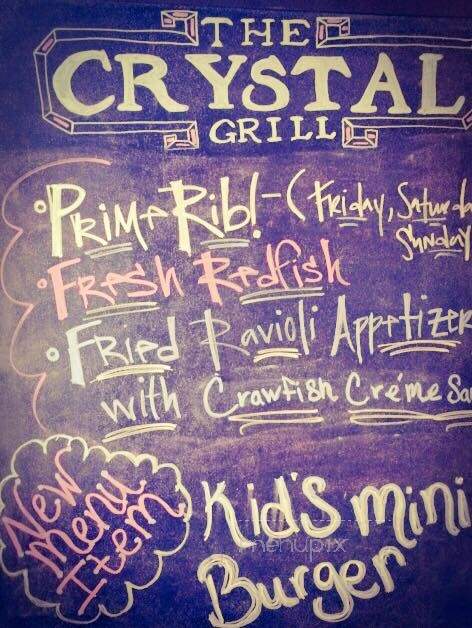 THE
CRYSTAL
GRILL
• Prime Rib! - (Friday, Saturda
Sunday
• Fresh Redfish
• Fried Ravioli Appetizer
with Crawfish Créme Sa
New
menu
Item
Kid's mini
Burger
menupix